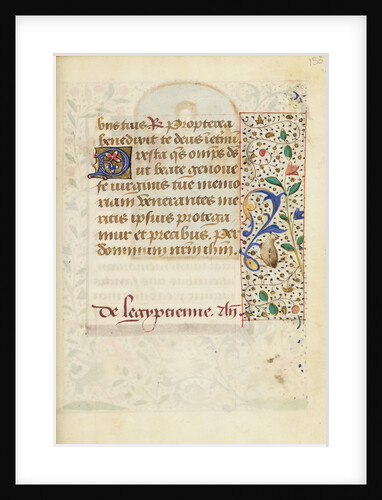 153
bijs tuis R Propterea
benedixit te deus in etnu
Presta qs omps ds
ut beate genoue
fe virginis tue memo
riam venerantes me
ritis ipsius protega
mur et precibus. Per
dominum nrm ihm.
De legyptienne. An